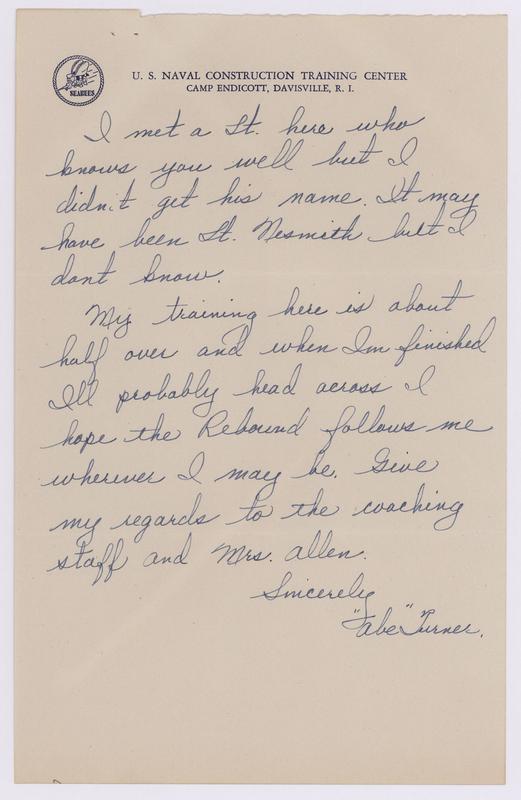 SEABEES
U. S. NAVAL CONSTRUCTION TRAINING CENTER
CAMP ENDICOTT, DAVISVILLE, R. I.
I met a Lt. here who
knows you well but I
didn't get his name. It may
have been Lt. Nesmith but I
dont know.
My training here is about
half over and when Im finished
Ill probably head across I
hope the Rebound follows me
wherever I may be. Give
my regards to the coaching
staff and Mrs. Allen.
Sincerely
"Fabe" Turner.